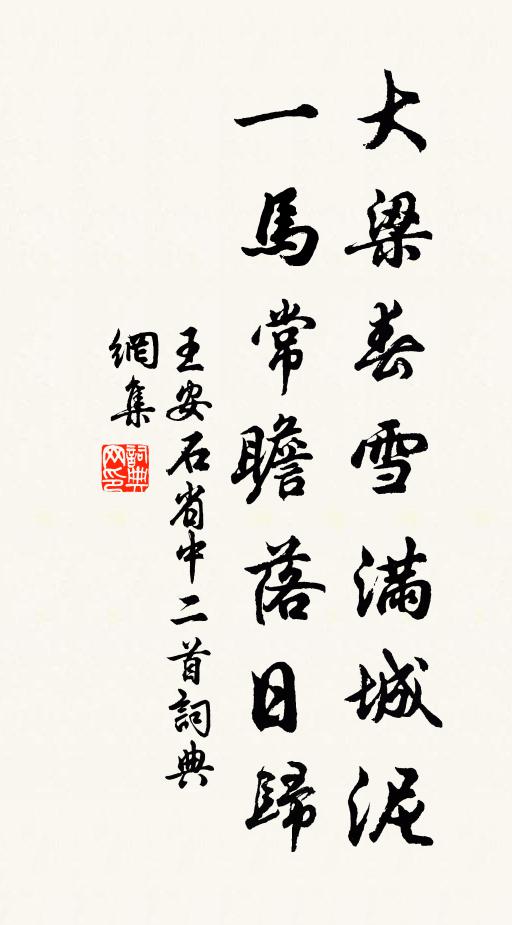 大梁春雪滿城泥
一馬常瞻落日歸
王安石省中二首詞典
網集
詞典網印